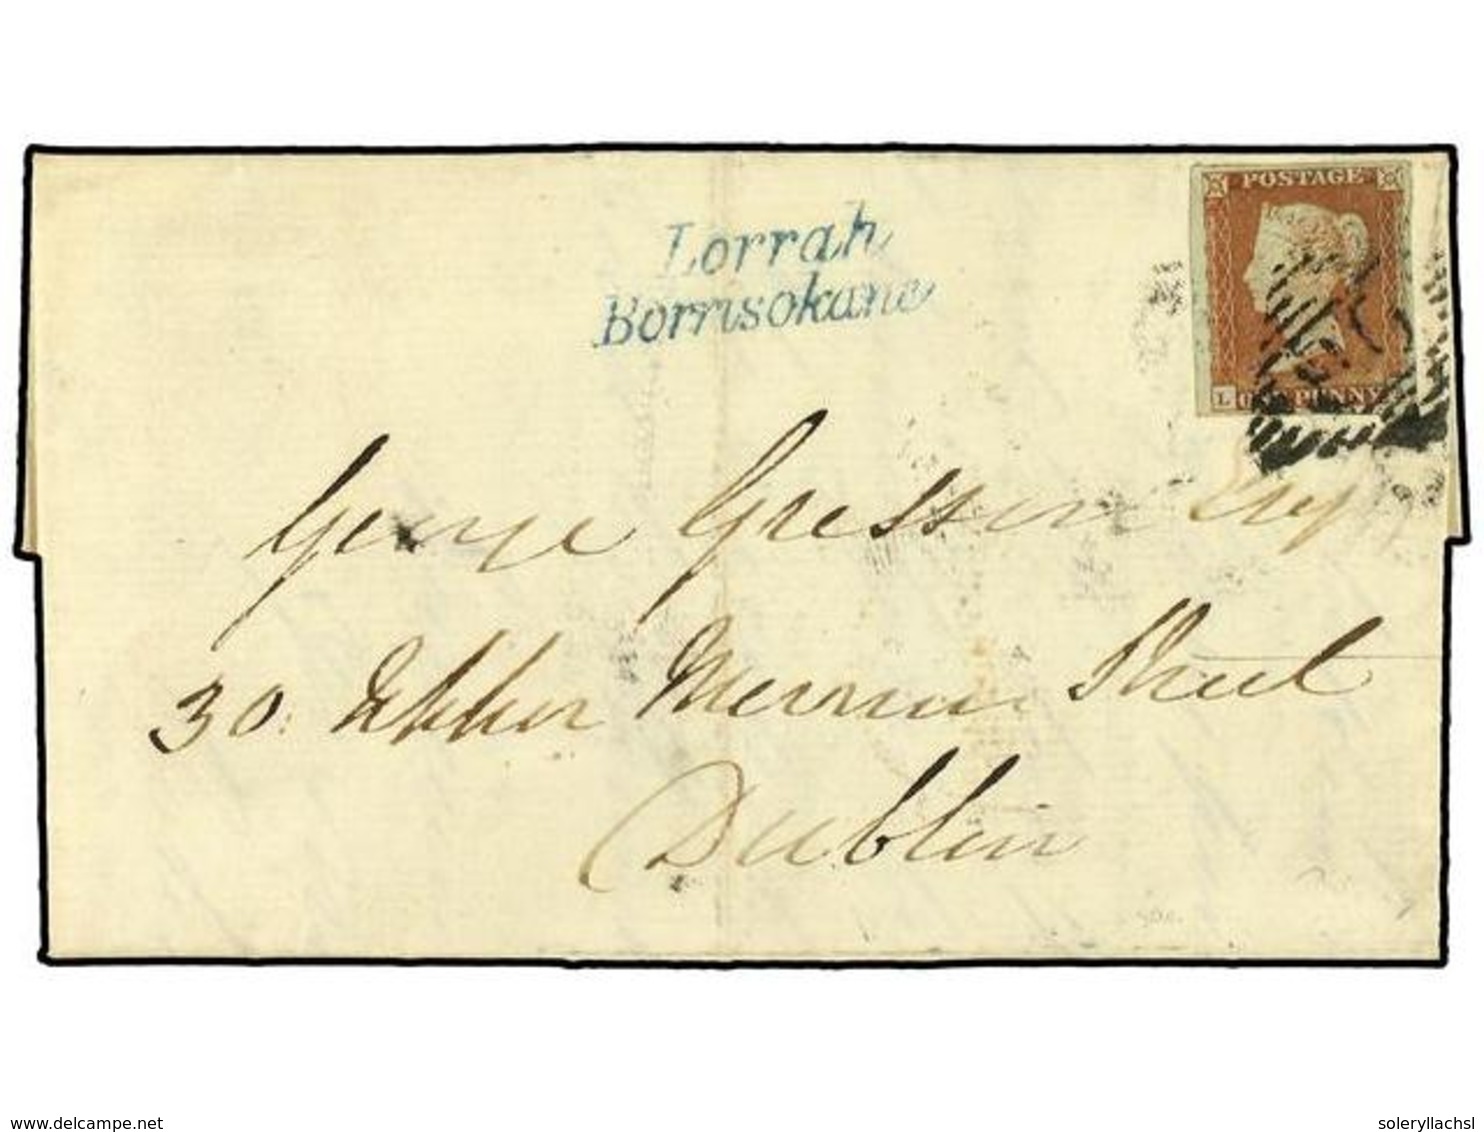 POSTAGE
Lorrah
Borrisokane
L
PENNY
George Gresson Esq
30. Upper Merrion Street
Dublin
www.delcampe.net
soleryllachsl